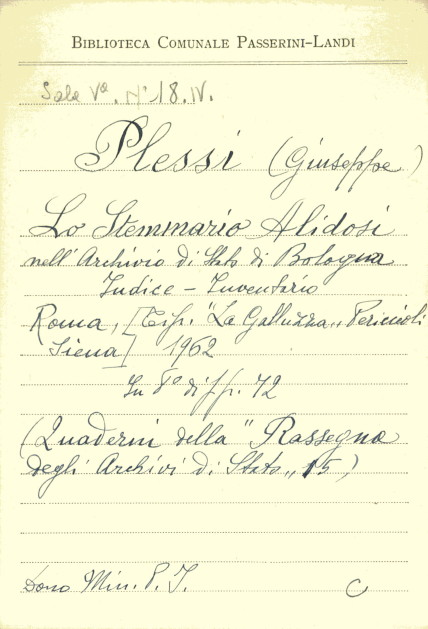 BIBLIOTECA COMUNALE PASSERINI-LANDI
Sala Vª. Nº 18. IV.
Plessi (Giuseppe)
Lo Stemmario Alidosi
nell'Archivio di Stato di Bologna
Indice - Inventario
Roma, [Tip. "La Galluzza„ Periccioli
Siena] 1962
In 8º di pp. 72
(Quaderni della "Rassegna
degli Archivi di Stato„ 15)
Dono Min. P. I.
C